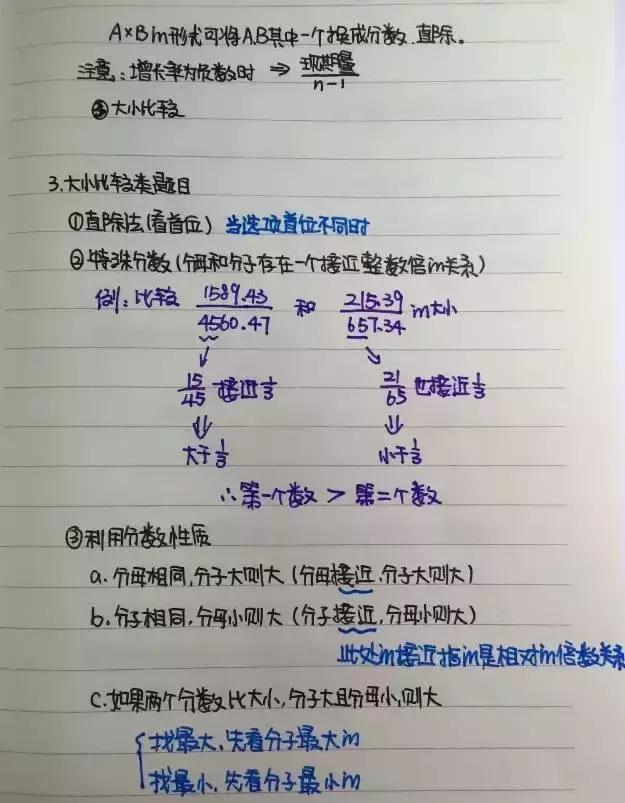 A×B的形式可将A,B其中一个换成分数,直除。
注意:增长率为负数时 ⇒ 现期量/n-1
④大小比较
3.大小比较类题目
①直除法(看首位) 当选项首位不同时
②特殊分数(分母和分子存在一个接近整数倍的关系)
例:比较 1589.43/4560.47 和 215.39/657.34 的大小
15/45 接近1/3 21/65 也接近1/3
大于1/3 小于1/3
∴第一个数 > 第二个数
③利用分数性质
a.分母相同,分子大则大(分母接近,分子大则大)
b.分子相同,分母小则大(分子接近,分母小则大)
此处的接近指的是相对的倍数关系
C.如果两个分数比大小,分子大且分母小,则大
找最大,先看分子最大的
找最小,先看分子最小的